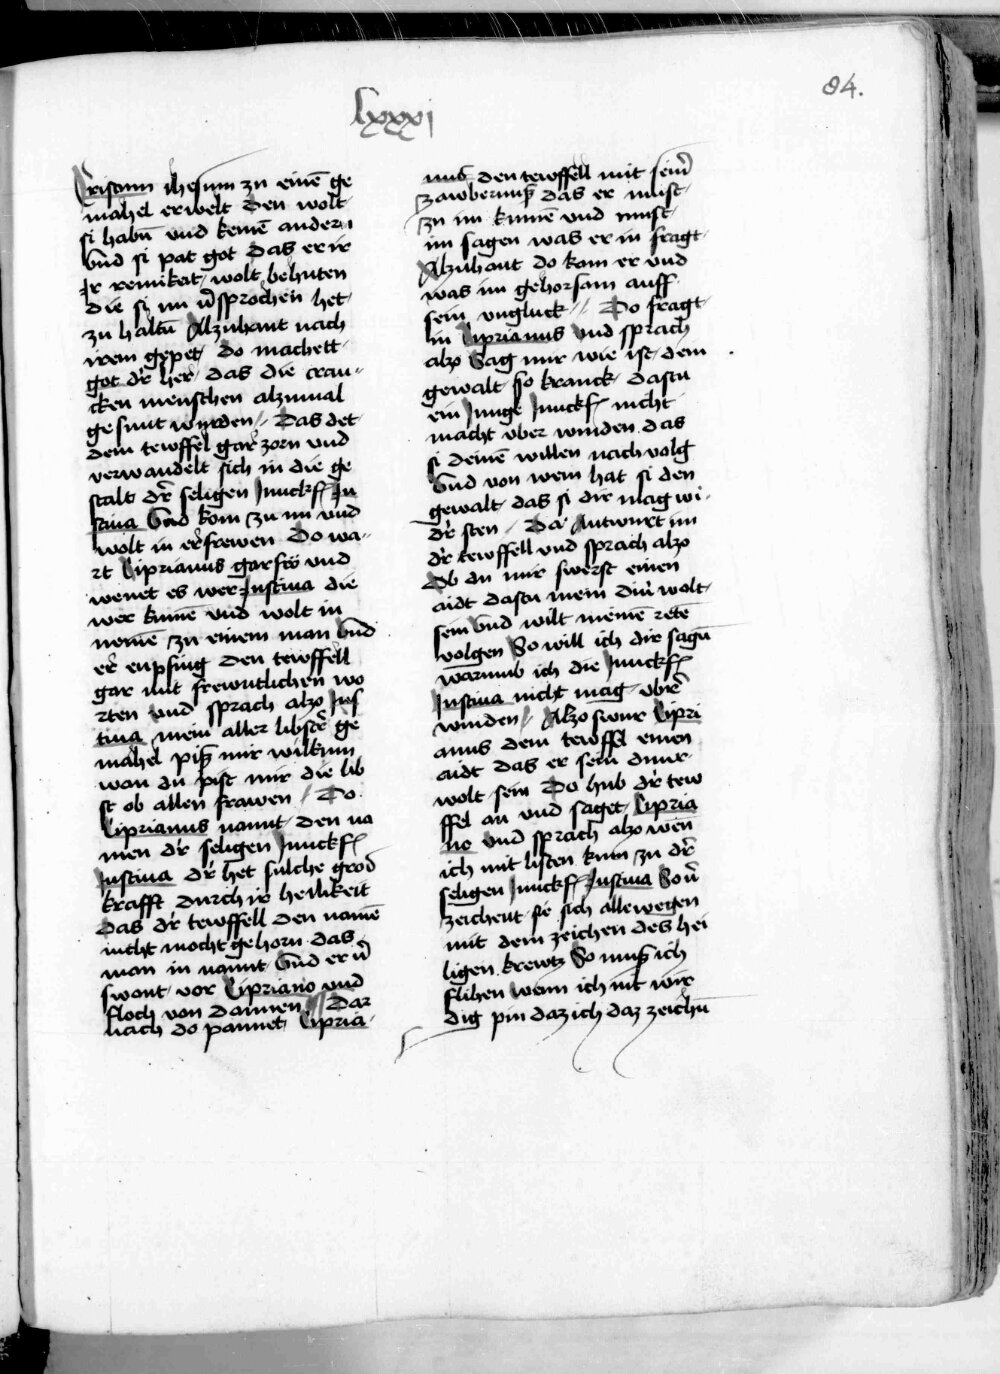 84.
lxxxj
Cristum ihesum zu einē ge
mahel erwelt Den wolt
si habn̄ vnd keinē andern
Vnd si pat got das er ir
Ir reinikeit wolt behuten
die si im v̄sprochen het
zu haltn̄ Alzuhant nach
irem gepet do machett
got dr̄ her das die cran-
cken menschen alzumal
gesunt wurden // Das det
dem tewffel gar zorn vnd
verwandelt sich in die ge
stalt dr̄ seligen Junckfͬ Ju
stina Vnd kom zu im vnd
wolt in er̄frewen Do wa-
rt Ciprianus gar fro vnd
wenet es wer Justina die
wer kumē vnd wolt in
nemē zu einem man Vnd
er̄ enpfing den tewffell
gar mit frewntlichen wo
rten vnd sprach alzo Jus
tina mein aller libste᷑ ge
mahel piß mir wilkum
wan du pist mir die lib
st ob allen frawen // Do
Ciprianus nannt den na
men dr̄ seligen Junckfͬ
Justina dr̄ het sulche groß
krafft durch ir heilikeit
das dr̄ tewffell den namē
nicht mocht gehorn das
man in nannt Vnd er v̄
swant vor Cipriano vnd
floch von dannen // Dar
nach do pannet Cipria-
nus den tewffell mit sein̄
zawbernuß das er must
zu im kumē vnd must
im sagen was er in fragt
Alzuhant do kom er vnd
was im gehorsam auff
sein vngluck // Do fragt
in Ciprianus vnd sprach
alzo Sag mir wie ist dein
gewalt so kranck dastu
ein Junge Junckfͬ nicht
macht vber winden das
si deinē willen nach volg
Vnd von wem hat si den
gewalt das si dir mag wi-
dr̄ sten // Da Antwurt im
dr̄ tewffell vnd sprach alzo
Ob du mir swerst einen
aidt dastu mein din̄ wolt
sein Vnd wilt meinē rete
volgen So will ich dir sagn̄
warumb ich die Junckfͬ
Justina nicht mag vbr̄
winden // Alzo swur Cipri
anus dem tewffel einen
aidt das er sein diner
wolt sein Do hub dr̄ tew
ffel an vnd saget Cipria
no vnd sprach alzo wen
ich mit listen kum zu dr̄
seligen Junckfͬ Justina So v̄
zeichent sie sich allewegen
mit dem zeichen des hei
ligen krewtz So muß ich
flihen wenn ich nit wir
dig pin daz ich daz zeichn̄